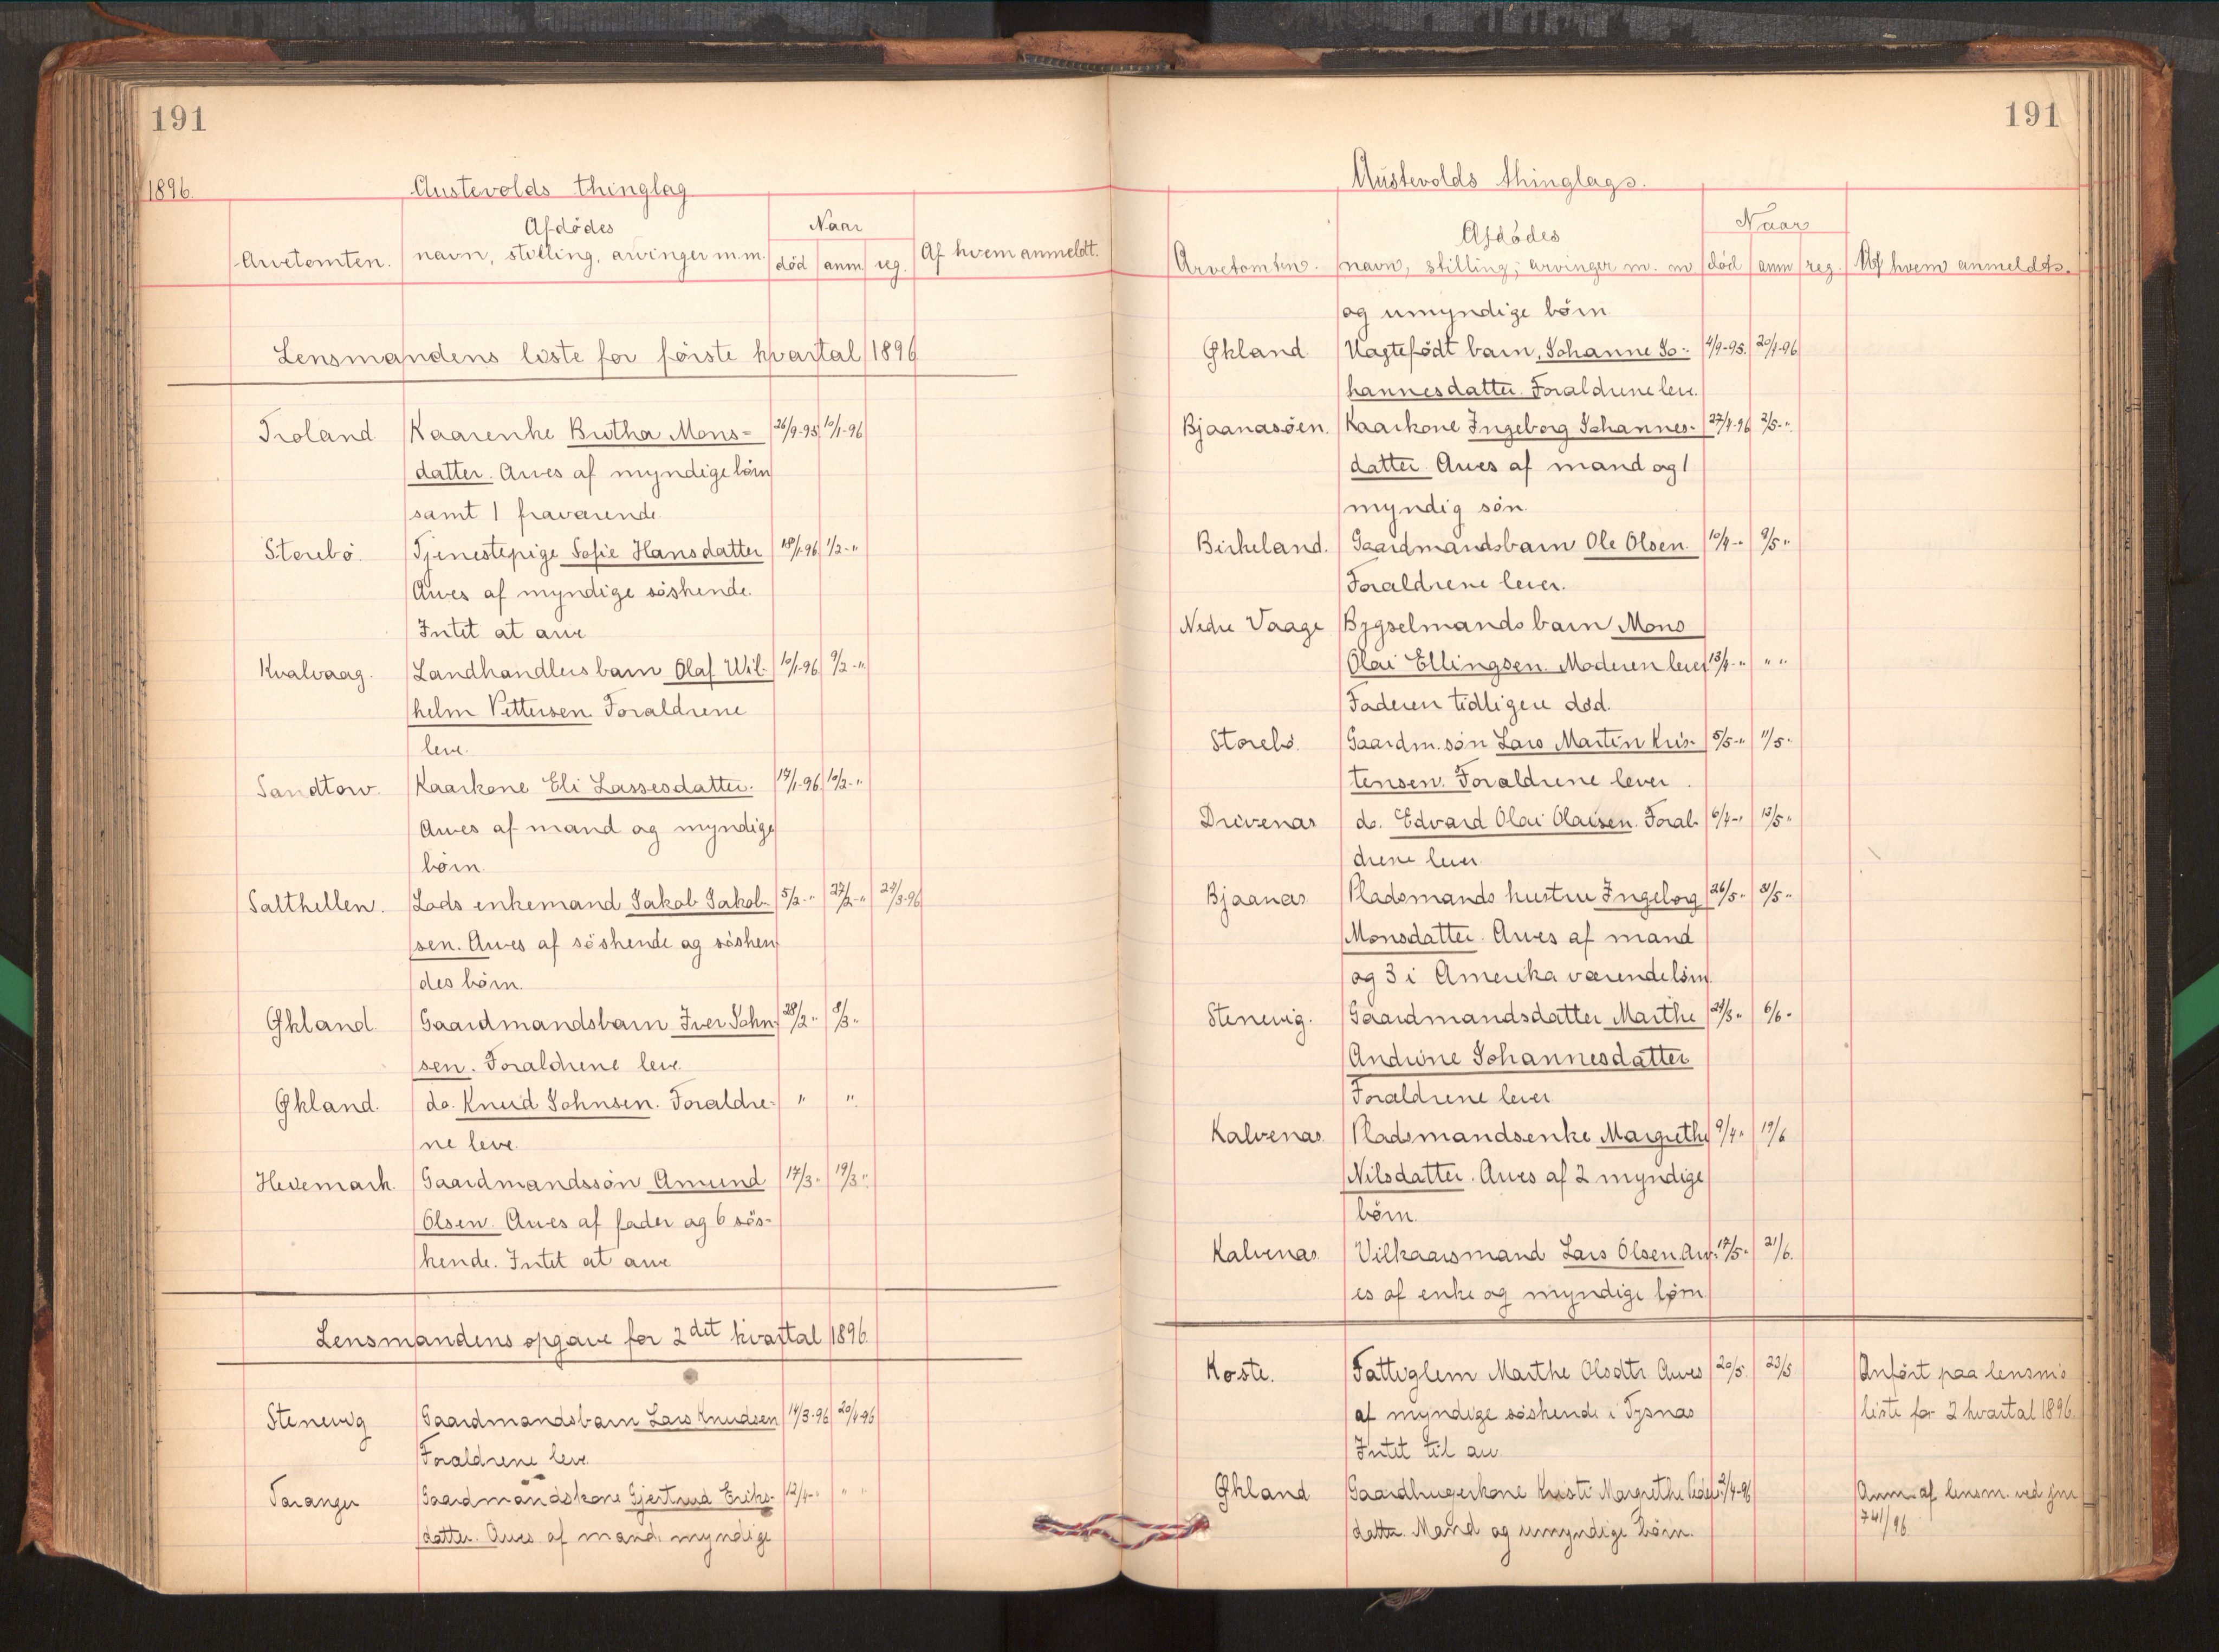 191
1896. Austevolds thinglag
Arvetomten. Afdödes navn, stilling, arvinger m.m. Naar död anm. reg. Af hvem anmeldt.
Lensmandens liste for förste kvartal 1896
Troland Kaarenke Britha Mons- 26/9-95 10/1-96
datter. Arves af myndige börn
samt 1 fraværende.
Storebö. Tjenestepige Sofie Hansdatter 18/1-96 1/2-"
Arves af myndige söskende.
Intet at arve
Kvalvaag. Landhandlers barn Olaf Wil- 10/1-96 9/2-"
helm Pettersen. Forældrene
leve.
Sandtorv. Kaarkone Eli Lassesdatter. 17/1-96 10/2-"
Arves af mand og myndige
börn.
Salthellen. Lods enkemand Jakob Jakob- 5/2-" 27/2-" 24/3-96
sen. Arves af söskende og sösken
des börn.
Økland. Gaardmandsbarn Iver John- 28/2" 8/3"
sen. Forældrene leve.
Økland. do. Knud Johnsen. Forældre- " "
ne leve.
Hevemark. Gaardmandssön Amund 17/3" 19/3"
Olsen. Arves af fader og 6 sös-
kende. Intet at arve
Lensmandens opgave for 2det kvartal 1896.
Stenevig Gaardmandsbarn Lars Knudsen 14/3-96 20/4-96
Forældrene leve.
Toranger Gaardmandskone Gjertrud Eriks- 12/4-" " "
datter. Arves af mand, myndige
191
Austevolds thinglags.
Arvetomten. Afdödes navn, stilling, arvinger m. m. Naar död anm reg. Af hvem anmeldts.
og umyndige börn
Økland Uægtefödt barn, Johanne Jo- 4/9-95. 20/4-96
hannesdatter. Forældrene leve.
Bjaanasøen. Kaarkone Ingeborg Johannes- 27/4-96 2/5-"
datter. Arves af mand og 1
myndig sön.
Birkeland. Gaardmandsbarn Ole Olsen. 10/4-" 9/5"
Forældrene lever.
Nedre Vaage Bygselmands barn Mons
Olai Ellingsen. Moderen lever 13/4-" " "
Faderen tidligere död.
Storebö Gaardm. sön Lars Martin Kris- 5/5-" 11/5"
tensen. Forældrene lever.
Drivenæs do. Edvard Olai Olaisen. Foræl- 6/4-" 13/5"
drene lever
Bjaanæs Pladsmands hustru Ingeborg 26/5" 31/5"
Monsdatter. Arves af mand
og 3 i Amerika værende börn.
Stenevig. Gaardmandsdatter Marthe 29/3" 6/6"
Andrine Johannesdatter
Forældrene lever
Kalvenæs Pladsmandsenke Margrethe 9/4" 19/6
Nilsdatter. Arves af 2 myndige
börn.
Kalvenæs Vilkaarsmand Lars Olsen. Arv- 17/5" 21/6.
es af enke og myndige børn
Koste. Fattiglem Marthe Olsdtr Arves 20/5 23/5 Anfört paa lensm's
af myndige söskende i Tysnæs liste for 2 kvartal 1896.
Intet til arv.
Økland Gaardbrugerkone Kristi Margrethe Peders- 2/4-96 Anm. af lensm. ved jnr
datter. Mand og umyndige börn. 741/96